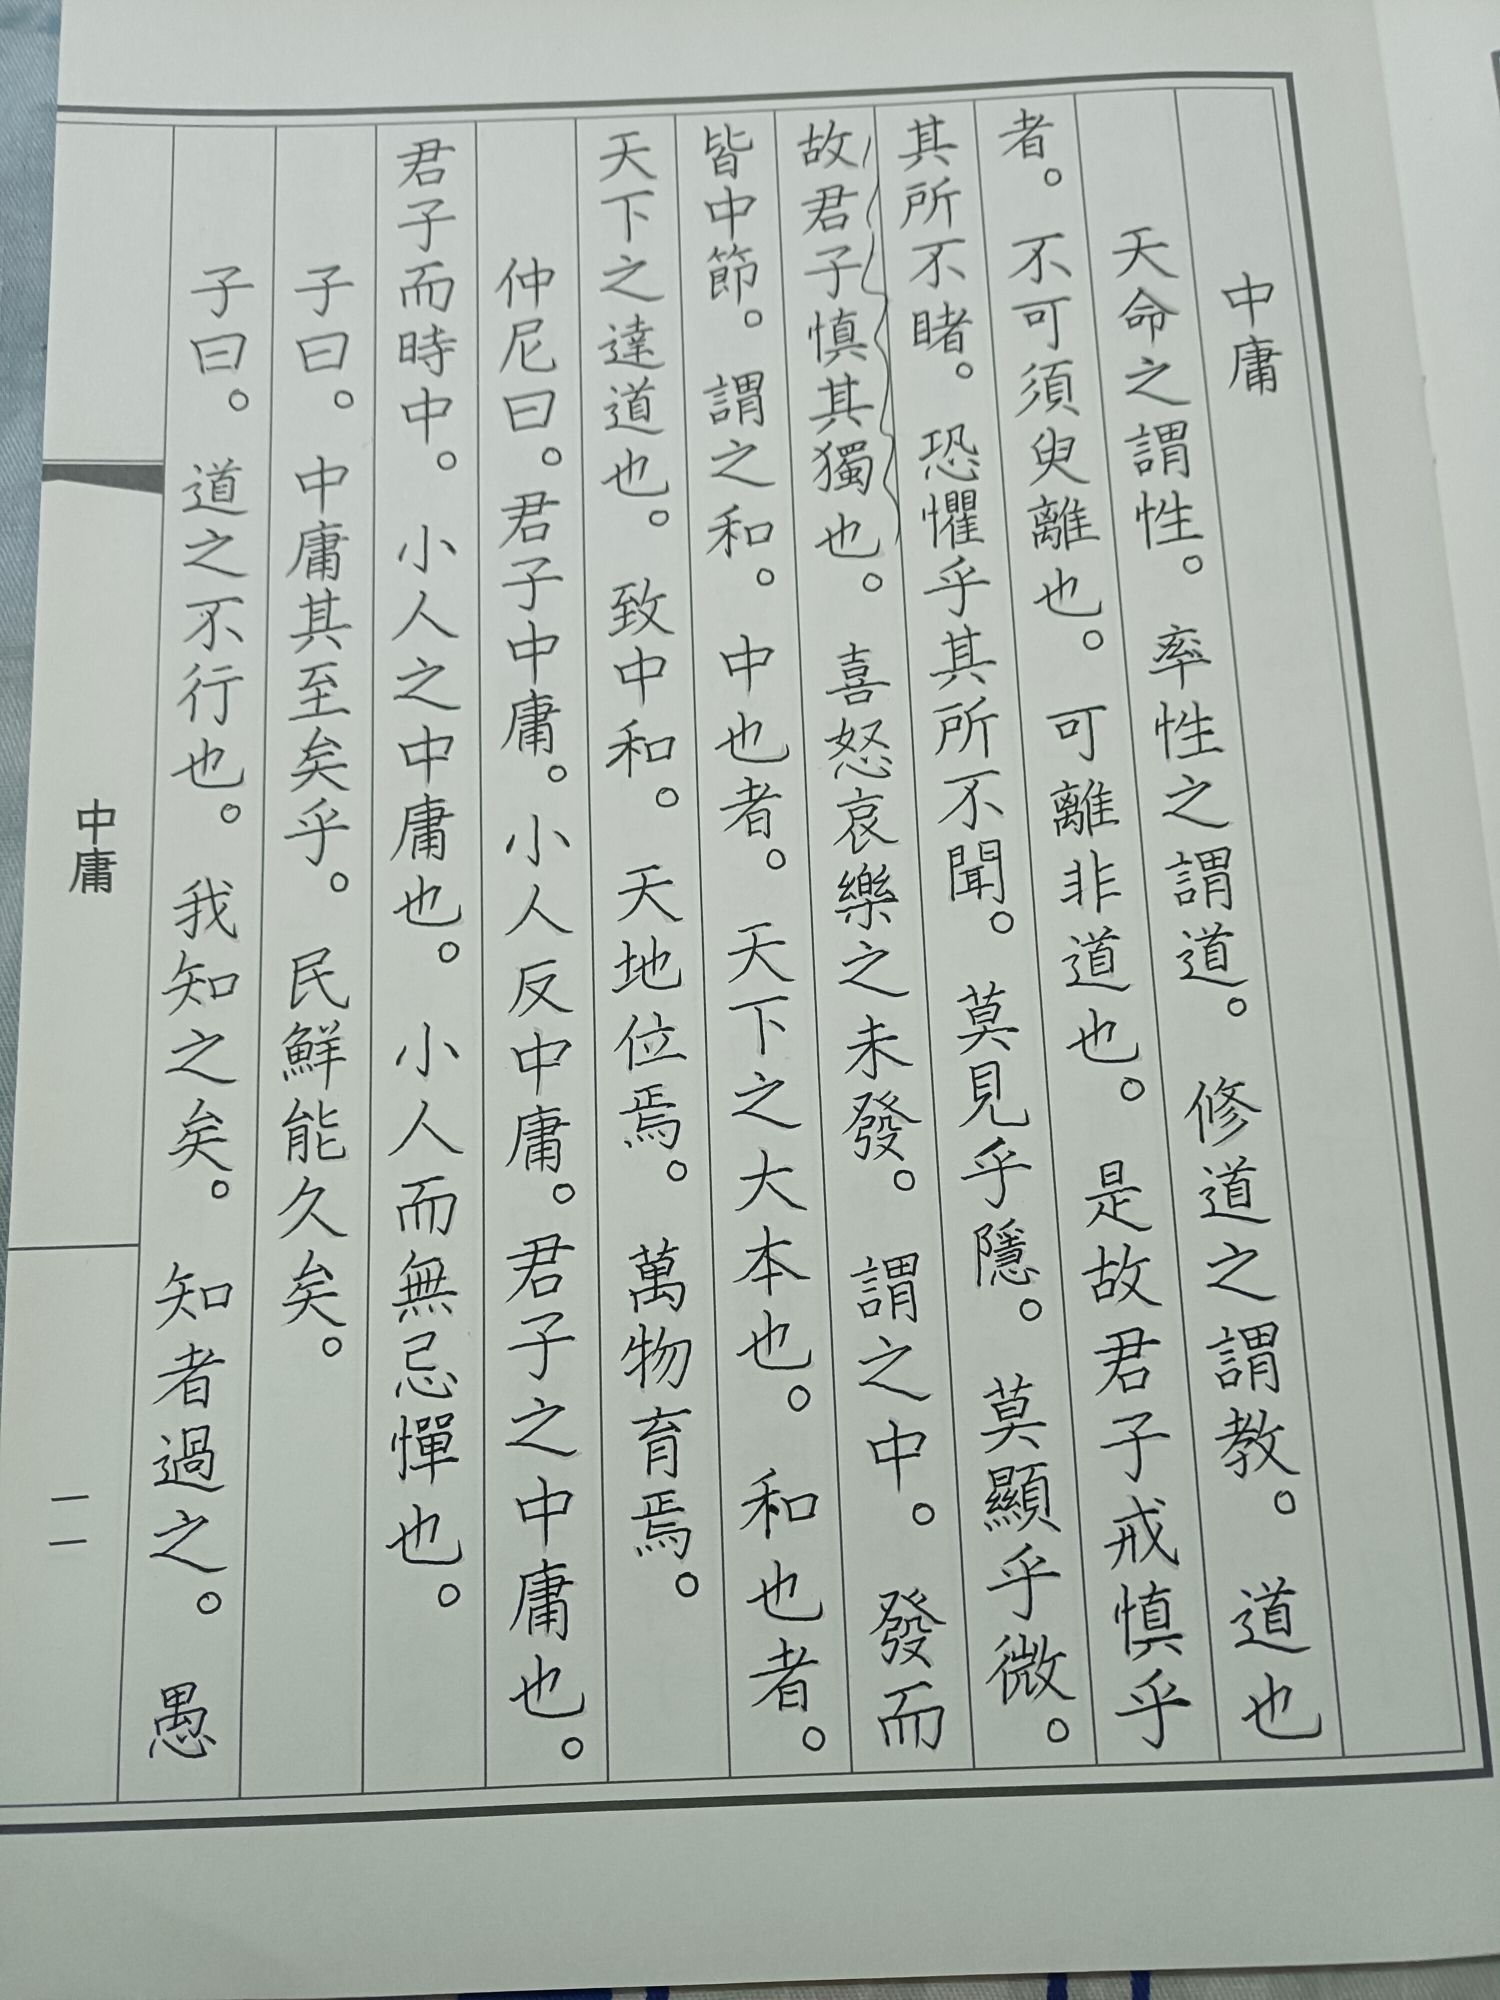 中庸
天命之謂性。率性之謂道。修道之謂教。道也
者。不可須臾離也。可離非道也。是故君子戒慎乎
其所不睹。恐懼乎其所不聞。莫見乎隱。莫顯乎微。
故君子慎其獨也。喜怒哀樂之未發。謂之中。發而
皆中節。謂之和。中也者。天下之大本也。和也者。
天下之達道也。致中和。天地位焉。萬物育焉。
仲尼曰。君子中庸。小人反中庸。君子之中庸也。
君子而時中。小人之中庸也。小人而無忌憚也。
子曰。中庸其至矣乎。民鮮能久矣。
子曰。道之不行也。我知之矣。知者過之。愚
中庸
一一